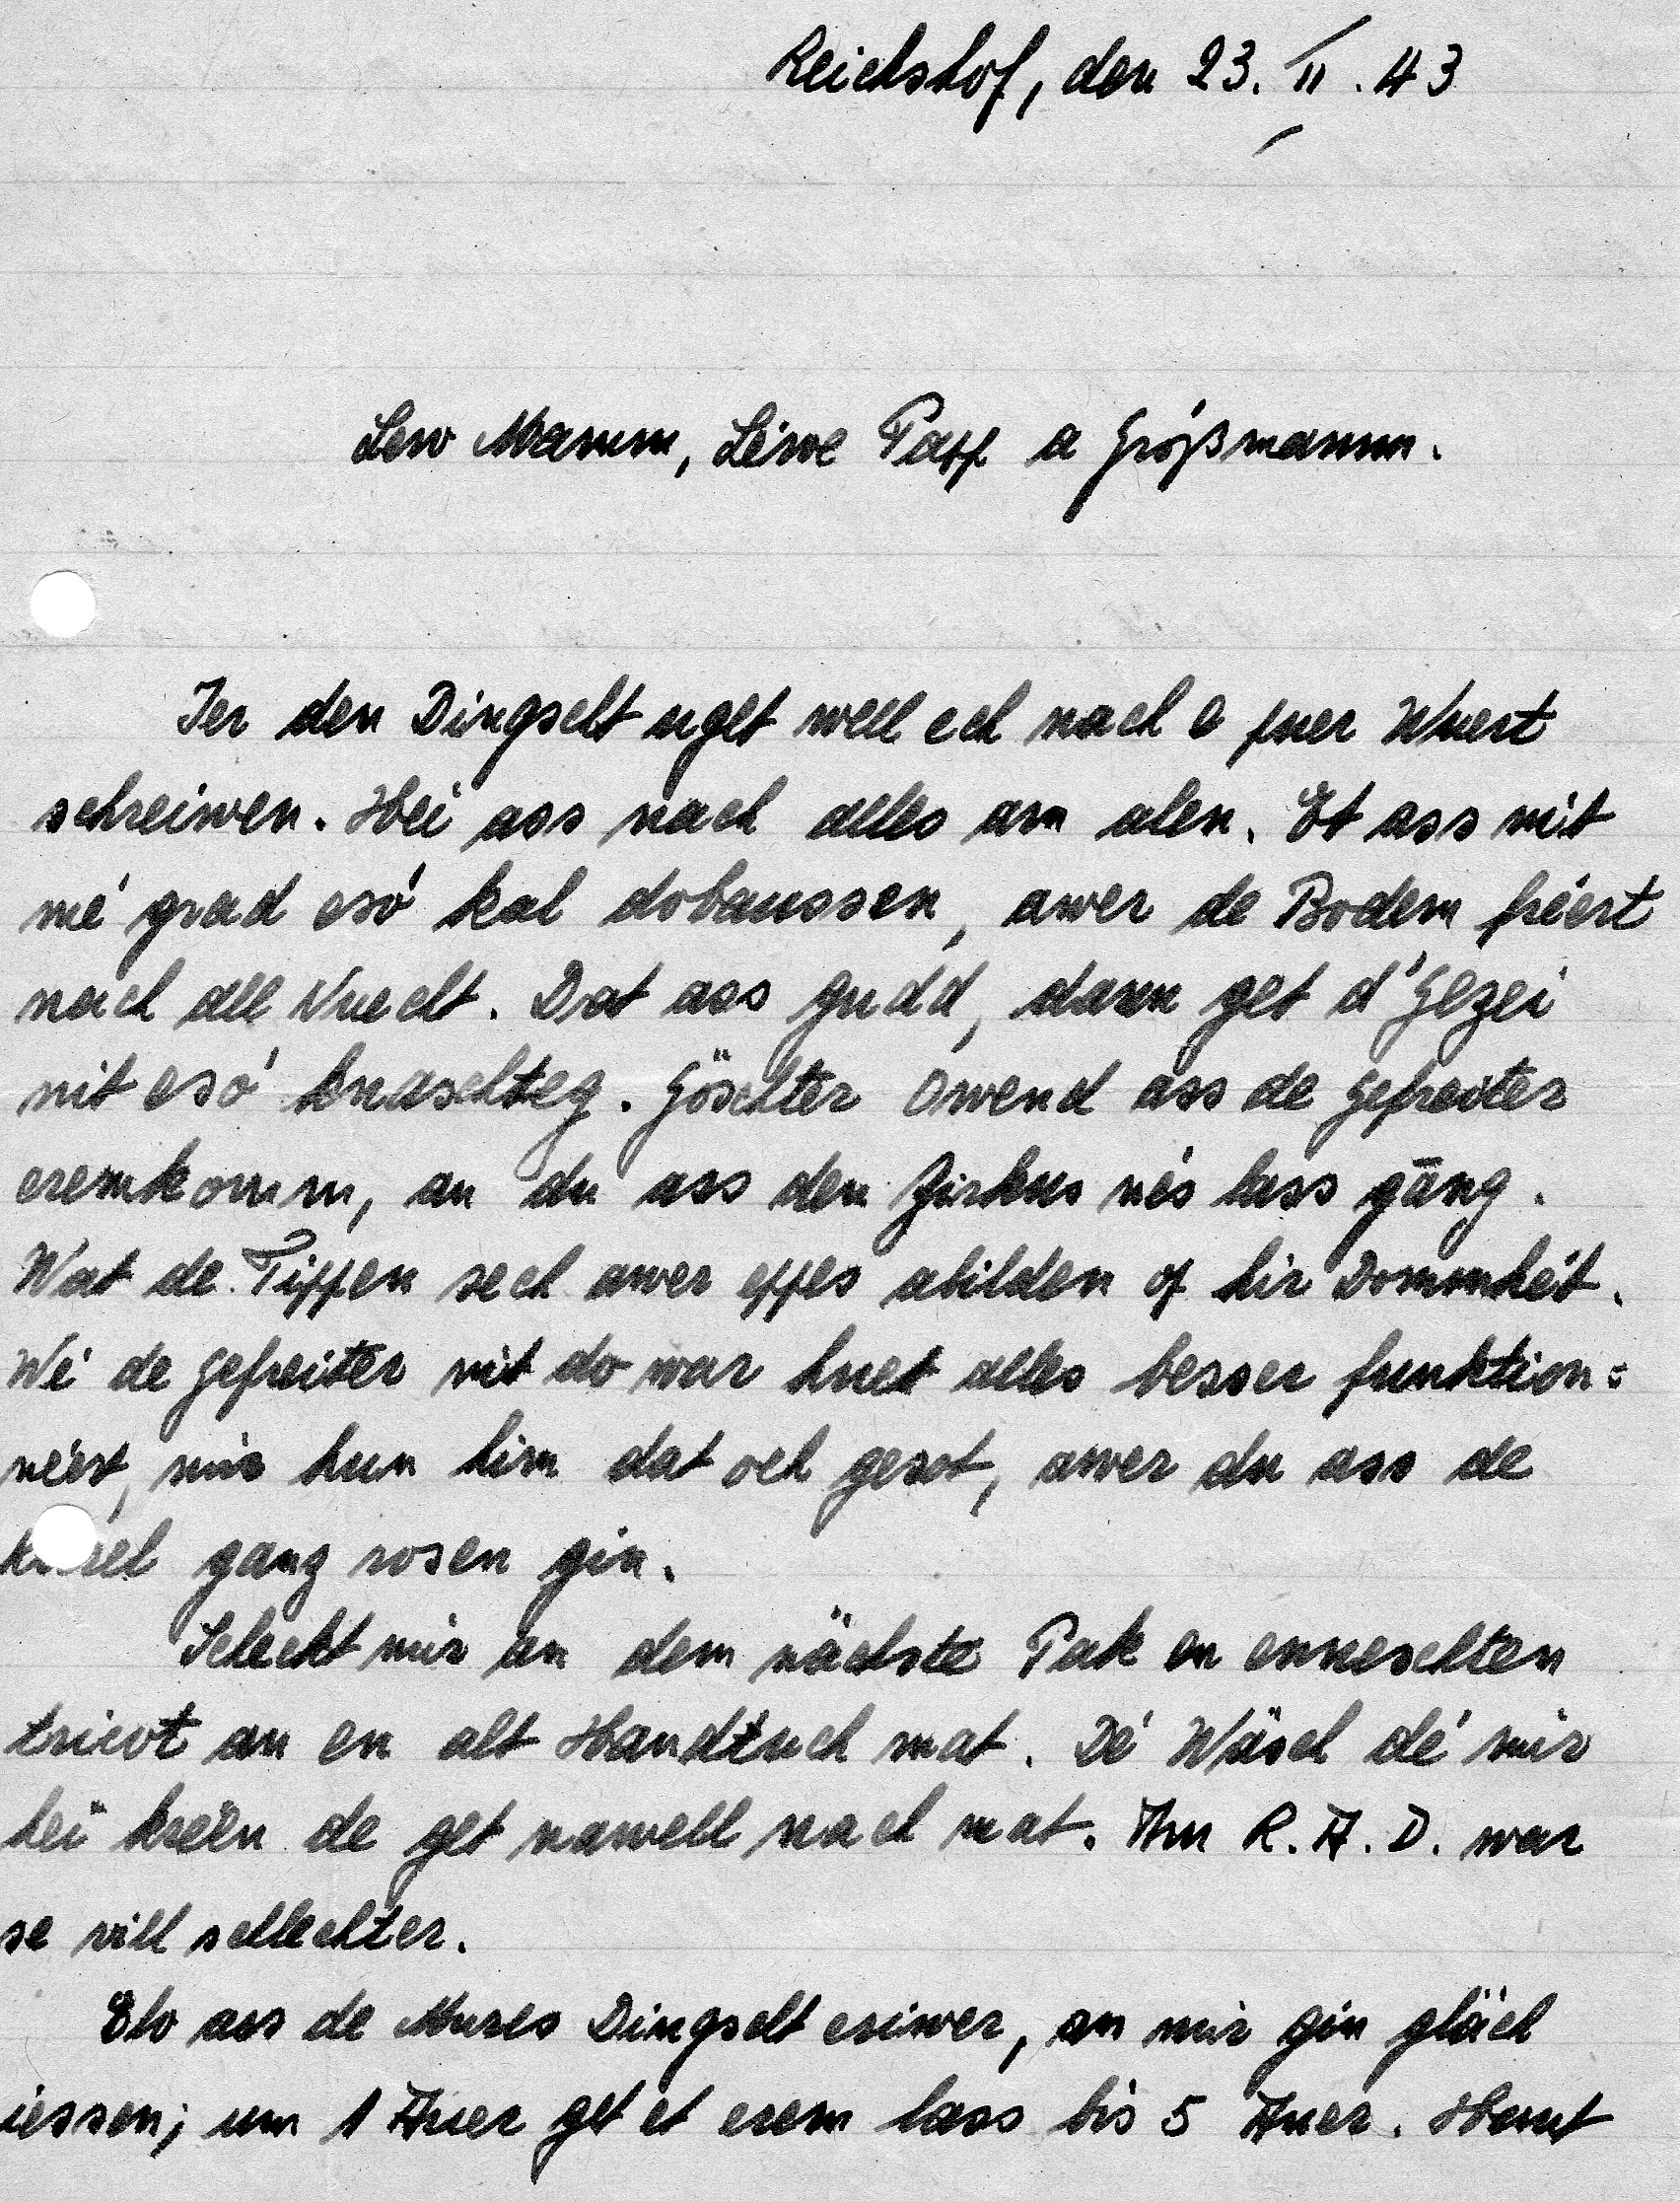 Reichshof, den 23. II. 43
Lew Mamm, Léwe Papp a Gróßmamm.
Ier den Dingscht ugét well ech nach e puer Wuert
schreiwen. Hei ass nach alles am alen. Et ass nit
mé grad esó kal dobaussen, awer de Bodem fréert
nach all Nuecht. Dat ass gudd, dann get d'Gezei
nit esó knaschteg. Göschter Owend ass de Gefreiter
eremkomm, an du ass den Zirkus nés lass gāng.
Wat de Tippen sech awer eppes abilden op hir Dommhét.
Wé de Gefreiter nit do war huet alles besser funktion=
néert, mir hun him dat och gesot, awer du ass de
ganz rosen gin.
Scheckt mir an dem nächste Pak en enneschten
tricot an en alt Handtuch mat. Dé Wäsch dé mir
hei kréen de get nawell nach mat. Am R.A.D. war
se vill schlechter.
Elo ass de Mures Dingscht eriwer, an mir gin gläch
iessen; um 1 Auer get et erem lass bis 5 Auer. Haut